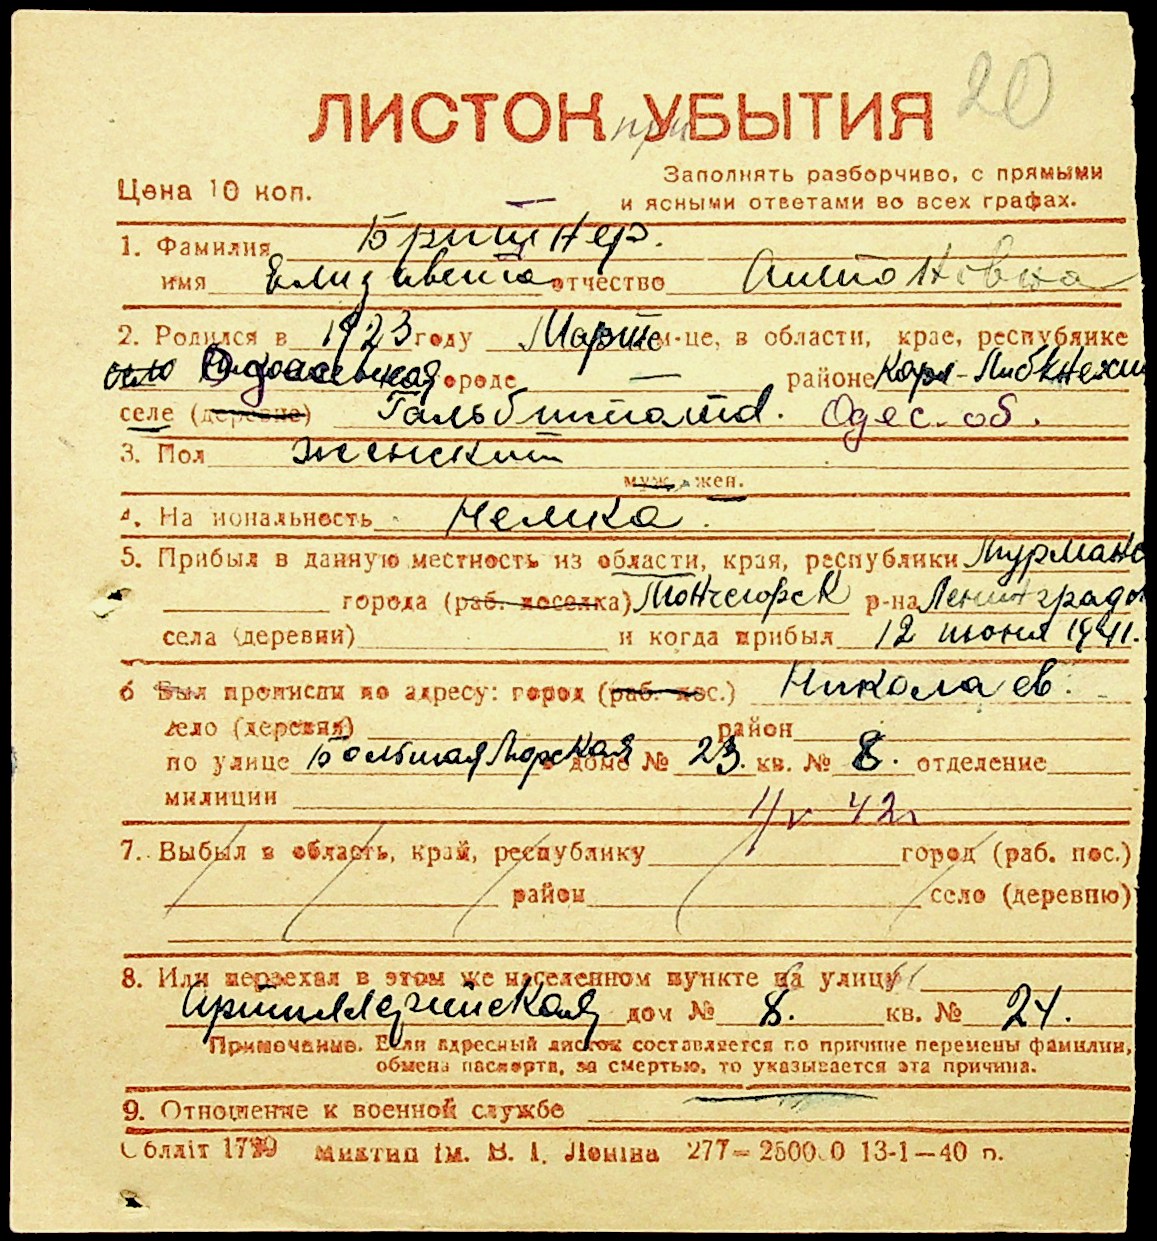 20
ЛИСТОК при УБЫТИЯ
Цена 10 коп.
Заполнять разборчиво, с прямыми
и ясными ответами во всех графах.
1. Фамилия Бритнер.
имя Елизавета отчество Антоновна
2. Родился в 1923 году Марте м-це, в области, крае, республике
городе — районе Карл-Либкнехт
селе (деревне) Гальбштатд. Одес. об.
3. Пол женский
муж., жен.
4. На иональность Немка.
5. Прибыл в данную местность из области, края, республики Мурманс
города (раб. поселка) Мончегорск р-на Ленинград
села (деревни) и когда прибыл 12 июня 1941.
6 Был прописан по адресу: город (раб. пос.) Николаев.
село (деревня) район
по улице Большая Морская в доме № 23. кв. № 8. отделение
милиции
42г
7. Выбыл в область, край, республику город (раб. пос.)
район село (деревню)
8. Или переехал в этом же населенном пункте на улицу
Артиллерийская дом № 8. кв. № 24.
Примечание. Если адресный листок составляется по причине перемены фамилии,
обмена паспорта, за смертью, то указывается эта причина.
9. Отношение к военной службе
Облліт 1799 Миктип ім. В. І. Леніна 277—2500.0 13-1—40 р.